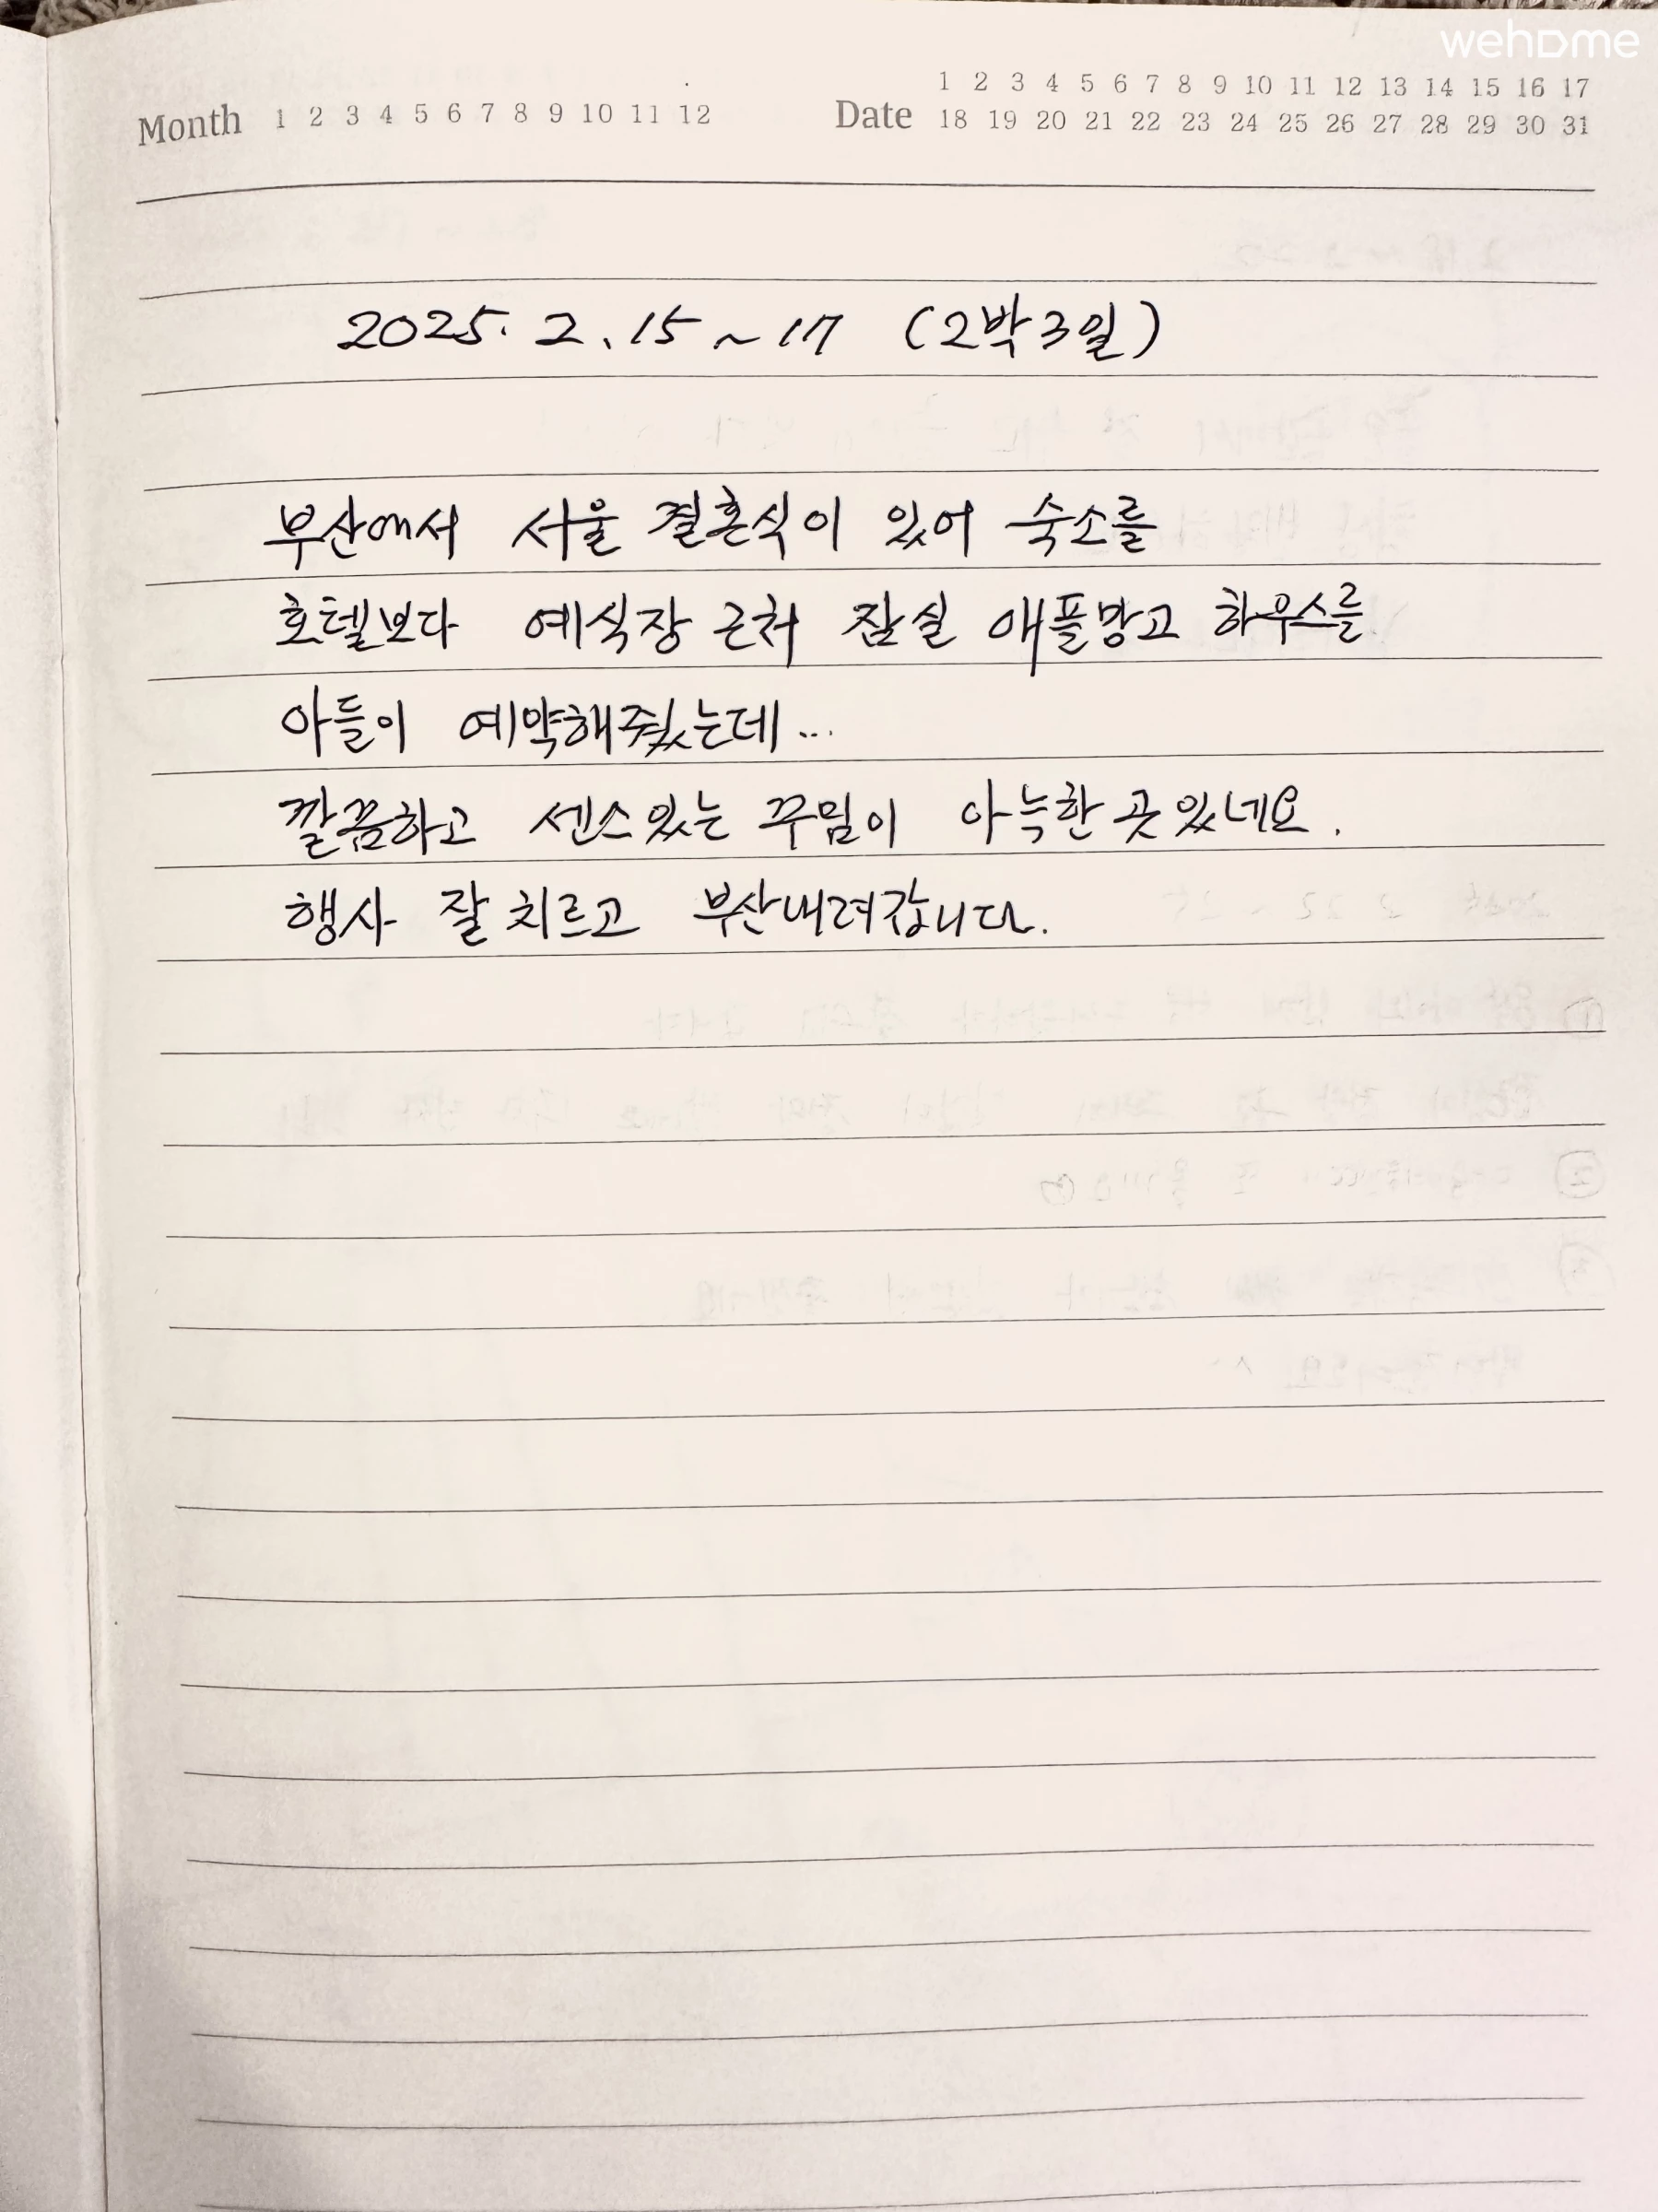 wehome
1 2 3 4 5 6 7 8 9 10 11 12 13 14 15 16 17
Month 1 2 3 4 5 6 7 8 9 10 11 12 Date 18 19 20 21 22 23 24 25 26 27 28 29 30 31
2025. 2. 15 ~ 17 (2박3일)
부산에서 서울 결혼식이 있어 숙소를
호텔보다 예식장 근처 잠실 애플망고 하우스를
아들이 예약해줬는데...
깔끔하고 센스있는 꾸밈이 아늑한 곳있네요.
행사 잘 치르고 부산내려갑니다.